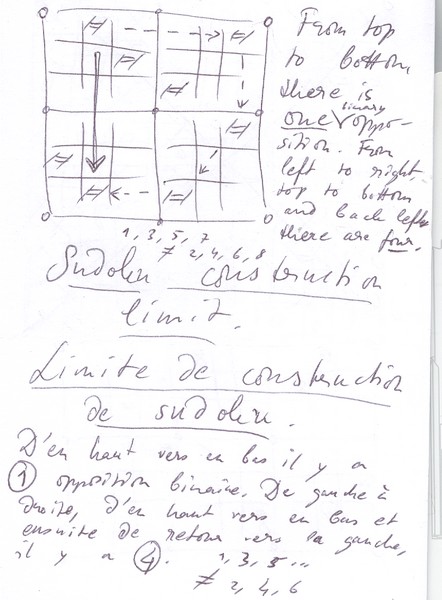 From top
to bottom,
there is
one binary oppo-
sition. From
left to right,
top to bottom
and back left,
there are four.
1, 3, 5, 7
≠ 2, 4, 6, 8
Sudoku construction
limit.
Limite de construction
de sudoku.
D'en haut vers en bas il y a
1 opposition binaire. De gauche à
droite, d'en haut vers en bas et
ensuite de retour vers la gauche,
il y a 4.
1, 3, 5 ...
≠ 2, 4, 6